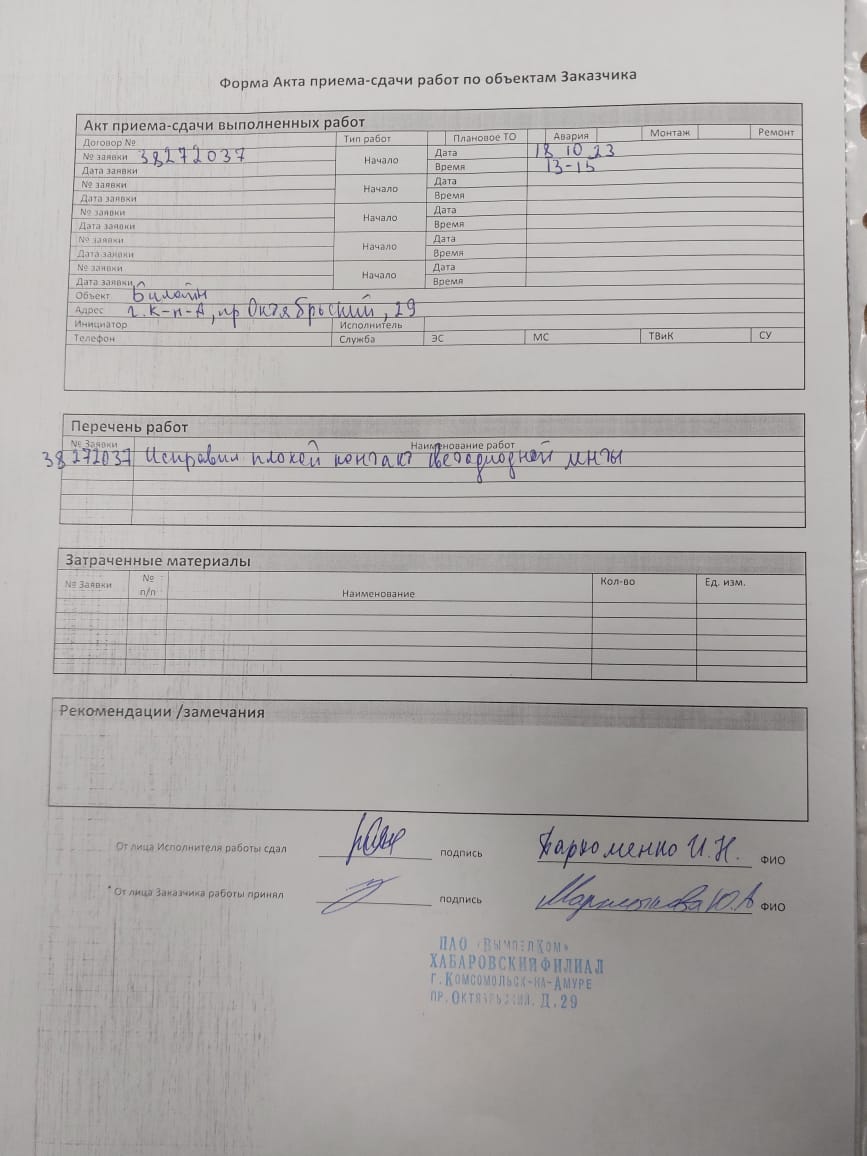 Форма Акта приема-сдачи работ по объектам Заказчика
Акт приема-сдачи выполненных работ
Договор № Тип работ Плановое ТО Авария Монтаж Ремонт
№ заявки 38272037 Начало Дата 18 10 23
Дата заявки Время 13-15
№ заявки Начало Дата
Дата заявки Время
№ заявки Начало Дата
Дата заявки Время
№ заявки Начало Дата
Дата заявки Время
№ заявки Начало Дата
Дата заявки Время
Объект Билайн
Адрес г. К-н-А, пр Октябрьский, 29
Инициатор Исполнитель
Телефон Служба ЭС МС ТВиК СУ
Перечень работ
№ Заявки Наименование работ
38272037 Исправил плохой контакт светодиодной
Затраченные материалы
№ Заявки № п/п Наименование Кол-во Ед. изм.
Рекомендации /замечания
От лица Исполнителя работы сдал подпись Пархоменко И.Н. ФИО
* От лица Заказчика работы принял подпись Ю.А ФИО
ПАО «ВымпелКом»
ХАБАРОВСКИЙ ФИЛИАЛ
г. Комсомольск-на-Амуре
пр. Октябрьский, д. 29